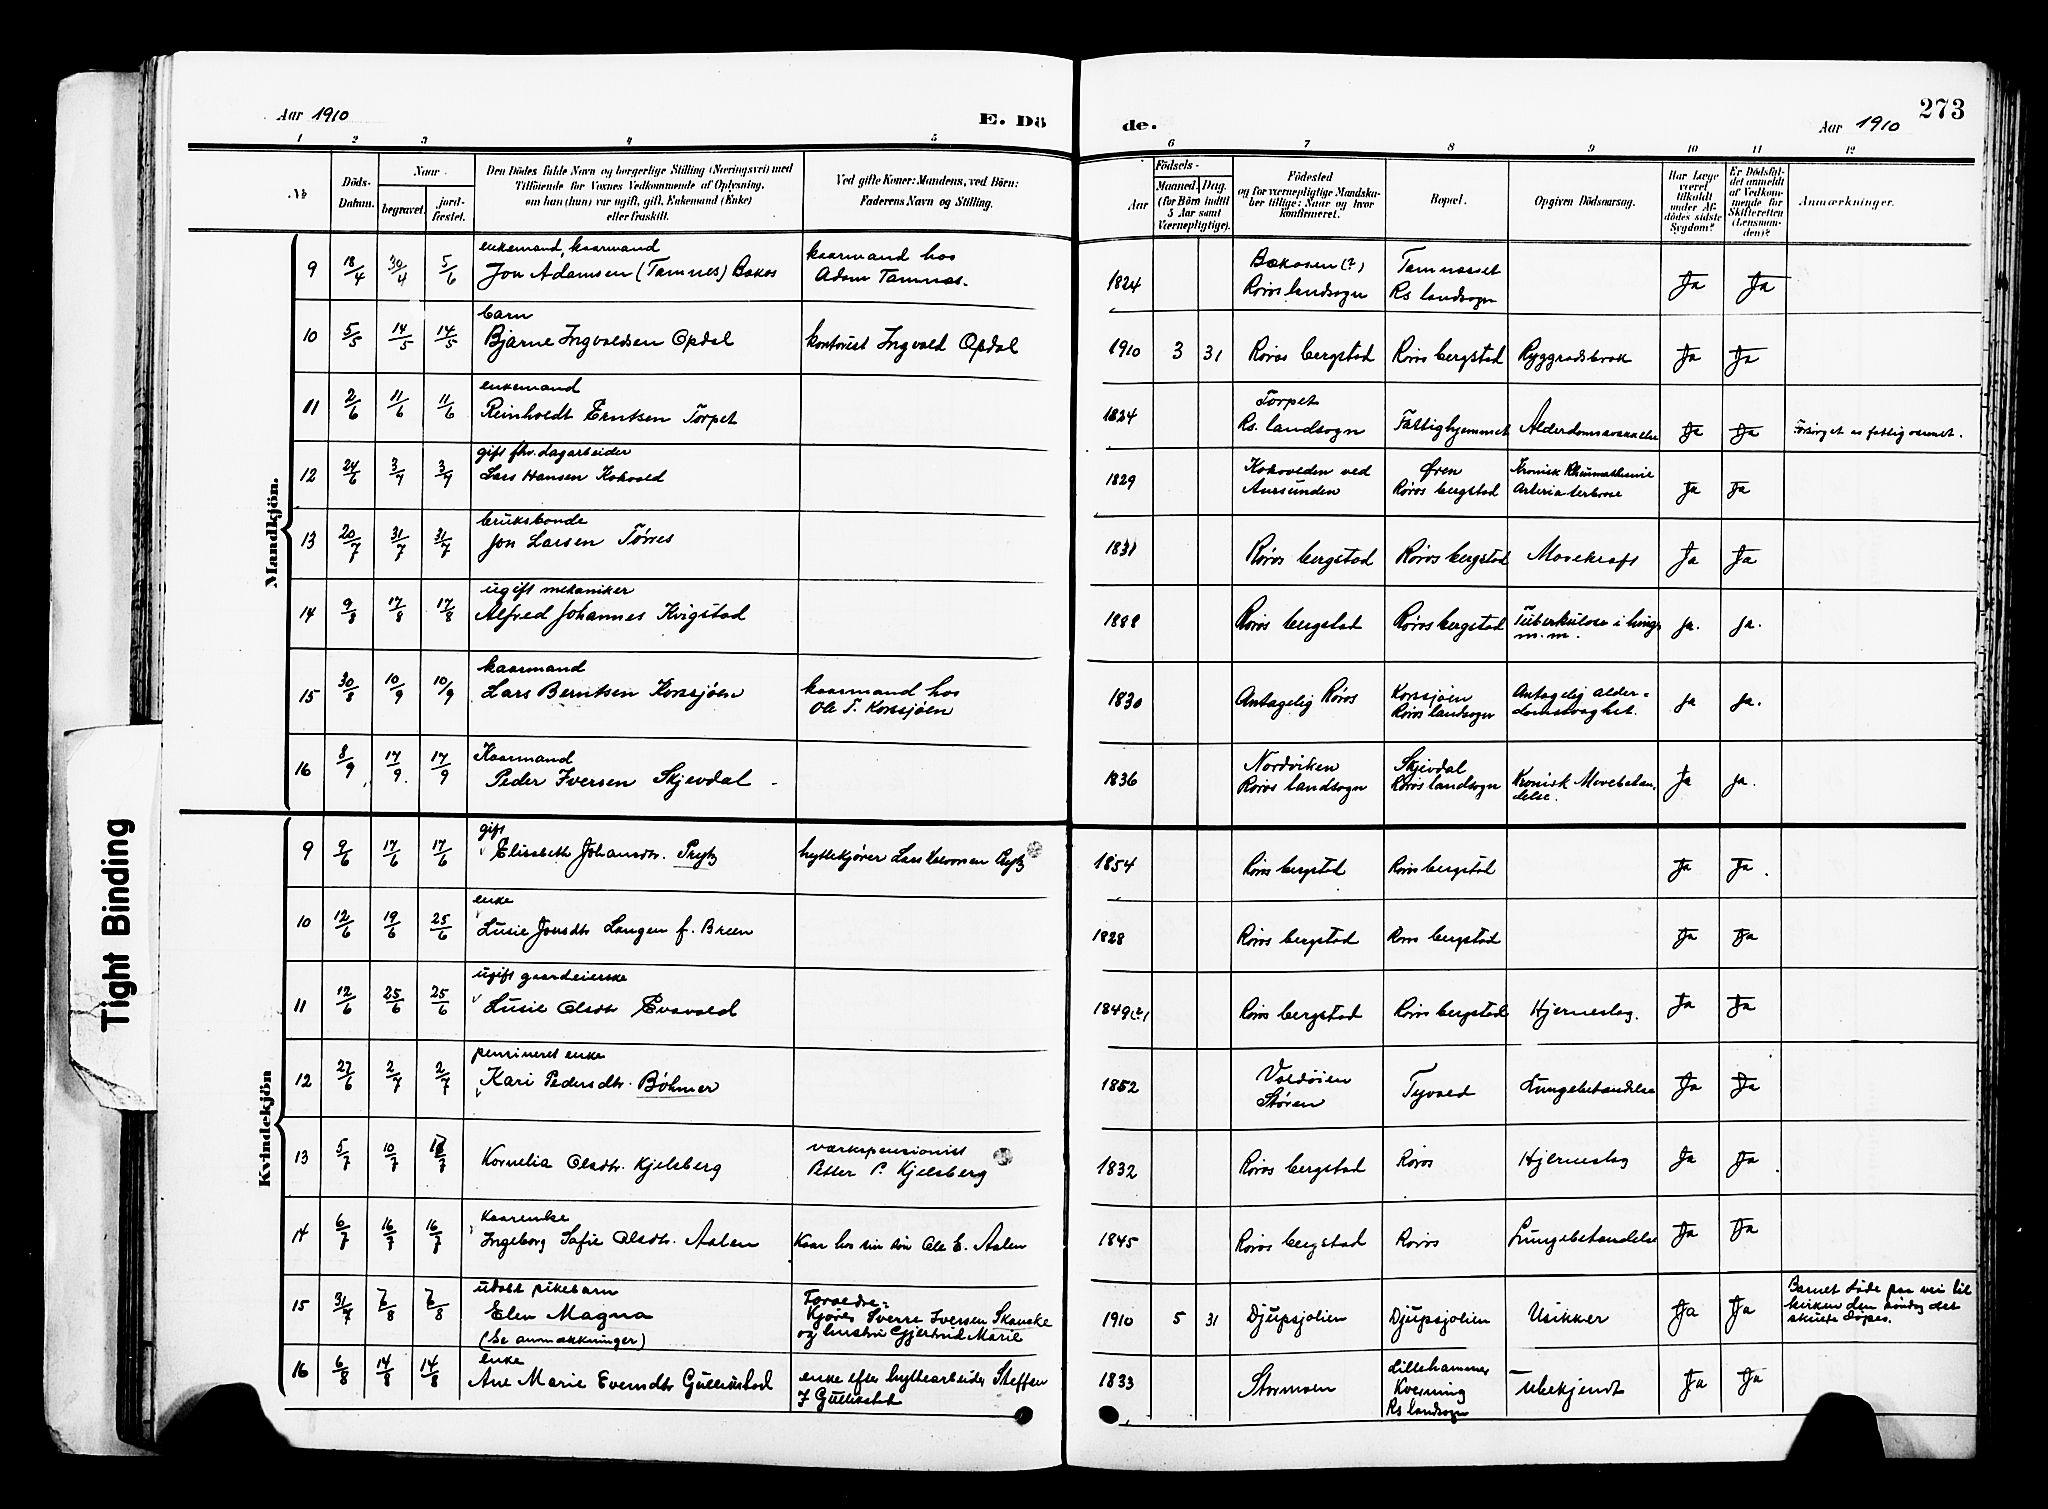 Aar 1910
E. Dö
de.
Aar 1910
273
1 2 3 4 5 6 7 8 9 10 11 12
No
Döds-
Datum.
Naar
begravet.
jord-
fæstet.
Den Dödes fulde Navn og borgerlige Stilling (Næringsvei) med
Tilföiende for Voxnes Vedkommende af Oplysning,
om han (hun) var ugift, gift, Enkemand (Enke)
eller fraskilt.
Ved gifte Koner: Mandens, ved Börn:
Faderens Navn og Stilling.
Födsels-
Aar
Maaned. Dag.
(for Börn indtil
5 Aar samt
Værnepligtige).
Födested
og for værnepligtige Mandska-
ber tillige: Naar og hvor
konfirmeret.
Bopæl.
Opgiven Dödsaarsag.
Har Læge
været
tilkaldt
under Af-
dödes sidste
Sygdom?
Er Dödsfal-
det anmeldt
af Vedkom-
mende for
Skifteretten
(Lensman-
den)?
Anmærkninger.
Mandkjön.
enkemand, kaarmand
9 18/4 30/4 5/6 Jon Adamsen (Tamnes) Bakos
kaarmand hos
Adam Tamnes.
1824
Bakosen (?)
Røros landsogn
Tamnesset
Rs landsogn
Ja Ja
barn
10 5/5 14/5 14/5 Bjarne Ingvaldsen Opdal
kontorist Ingvald Opdal
1910 3 31 Røros bergstad Røros bergstad Ryggradsbrok Ja Ja
enkemand
11 2/6 11/6 11/6 Reinholdt Erntsen Torpet
1824
Torpet
Rs. landsogn
Fattighjemmet
Ja Ja
Forsørget av fattigvæsenet.
gift fhv. dagarbeider
12 24/6 3/7 3/7 Lars Hansen Kokvold
1829
Kokvolden ved
Aursunden
Øren
Røros bergstad
Kronisk Rheumathisme
Ja Ja
bruksbonde
13 20/7 31/7 31/7 Jon Larsen Törres
1831 Røros bergstad Røros bergstad Mavekræft Ja Ja
ugift mekaniker
14 9/8 17/8 17/8 Alfred Johannes Kvigstad
1888 Røros bergstad Røros bergstad
Tuberkulose i lunge
m. m.
Ja. Ja.
kaarmand
15 30/8 10/9 10/9 Lars Berntsen Korssjøen
kaarmand hos
Ole T. Korssjøen
1830 Antagelig Røros
Korssjøen
Røros landsogn
Antagelig alder=
domssvaghet.
Ja Ja.
Kaarmand
16 8/9 17/9 17/9 Peder Iversen Skjevdal
1836
Nordviken
Røros landsogn
Skjevdal
Røros landsogn
Kronisk Mavebetæn,
delse.
Ja Ja.
Kvindekjön
gift
9 9/6 17/6 17/6 Elisabeth Johansdtr. Prytz
hyttekjører Lars Prytz
1854 Røros bergstad Røros bergstad Ja Ja
enke
10 12/6 19/6 25/6 Lusie Jonsdtr Langen f. Breen
1828 Røros bergstad Røros bergstad Ja Ja
ugift gaardeierske
11 12/6 25/6 25/6 Lusie Olsdtr Evavold
1849(?) Røros bergstad Røros bergstad Hjerneslag. Ja Ja
pensineret enke
12 27/6 2/7 2/7 Kari Pedersdtr. Böhmer
1852
Voldøien
Støren
Tyvold
Lungebetændelse Ja Ja
13 5/7 10/7 Kornelia Olsdtr. Kjelsberg
værkspensionist
Petter P. Kjelsberg
1832 Røros bergstad Røros Hjerneslag Ja Ja
Kaarenke
14 6/7 16/7 16/7 Ingeborg Sofie Olsdtr. Aalen
Kaar hos sin søn Ole E. Aalen
1845 Røros bergstad Røros Lungebetændelse Ja Ja
udøbt pikebarn
15 31/7 7/8 7/8 Elen Magna
(Se anmærkninger)
Forældre=
Kjører Sverre Iversen Skancke
og hustru Gjertrud Marie
1910 5 31 Djupsjølien Djupsjølien Usikker Ja Ja
Barnet døde paa vei til
kirken den søndag det
skulde døpes.
enke
16 6/8 14/8 14/8 Ane Marie Evendtr Gullikstad
enke efter hyttearbeider Steffen
J Gullikstad
1833 Stormoen
Lillehammer
Kverning
Rs landsogn
Ubekjendt Ja Ja
Tight Binding